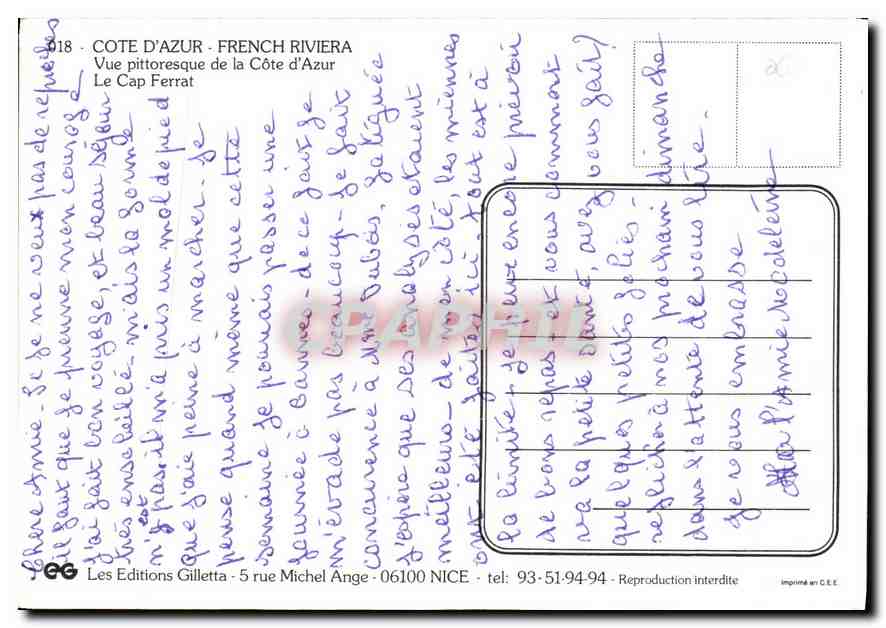 018 - COTE D'AZUR - FRENCH RIVIERA
Vue pittoresque de la Côte d'Azur
Le Cap Ferrat
Chère Amie - Si je ne veux pas de reproches
il faut que je prenne mon courage
j'ai fait bon voyage, et beau séjour
très ensoleillé - mais la Gourde
n'y est pas, il m'a pris un mal de pied
que j'aie peine à marcher - Je
pense quand même que cette
semaine je pourrais passer une
journée à Cannes - de ce fait je
m'évade pas beaucoup - Je fait
concurence à Mme Dubois, fatiguée
J'espère que ses analyses étaient
meilleures - de mon côté, les miennes
ont été faites ici - tout est à
la limite - je peux encore prévoir
de bons repas - et vous comment
va la petite santé, avez vous fait
quelques petites folies -
réfléchir à nos prochain dimanche
dans l'attente de vous lire -
je vous embrasse
l'Amie Madeleine
CPAPHIL
EG Les Editions Gilletta - 5 rue Michel Ange - 06100 NICE - tel: 93-51-94-94 - Reproduction interdite
Imprimé en C.E.E.